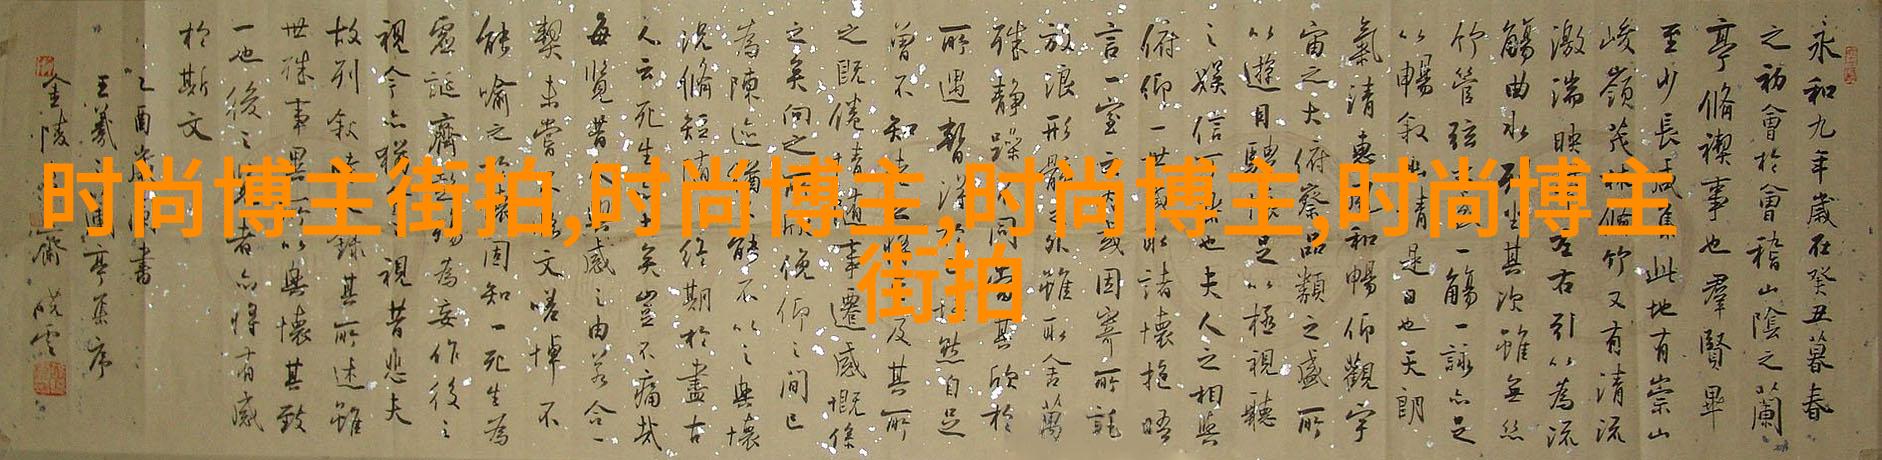 时尚博主街拍,时尚博主,时尚博主,时尚博主
街拍
永和九年歲在癸丑暮春
之初會於會稽山陰之蘭
亭脩禊事也羣賢畢
至少長咸集此地有崇山
峻嶺茂林脩竹又有清流
激湍映帶左右引以為流
觴曲水列坐其次雖無絲
竹管弦之盛一觴一詠亦足
以暢敘幽情是日也天朗
氣清惠風和暢仰觀宇
宙之大俯察品類之盛所
以遊目騁懷足以極視聽
之娛信可樂也夫人之相與
俯仰一世或取諸懷抱晤
言一室之內或因寄所託
放浪形骸之外雖取舍萬
殊靜躁不同當其欣於
所遇暫得於己怏然自足
曾不知老之將至及其所
之既倦情隨事遷感慨係
之矣向之所欣俛仰之間已
為陳迹猶不能不以之興懷
況脩短隨化終期於盡古
人云死生亦大矣豈不痛哉
每覽昔人興感之由若合一
契未嘗不臨文嗟悼不
能喻之於懷固知一死生為
虛誕齊彭殤為妄作後之
視今亦猶今之視昔悲夫
故列敘時人錄其所述雖
世殊事異所以興懷其致
一也後之覽者亦將有感
於斯文
乙酉歲書
王羲之蘭亭集序
金陵齋